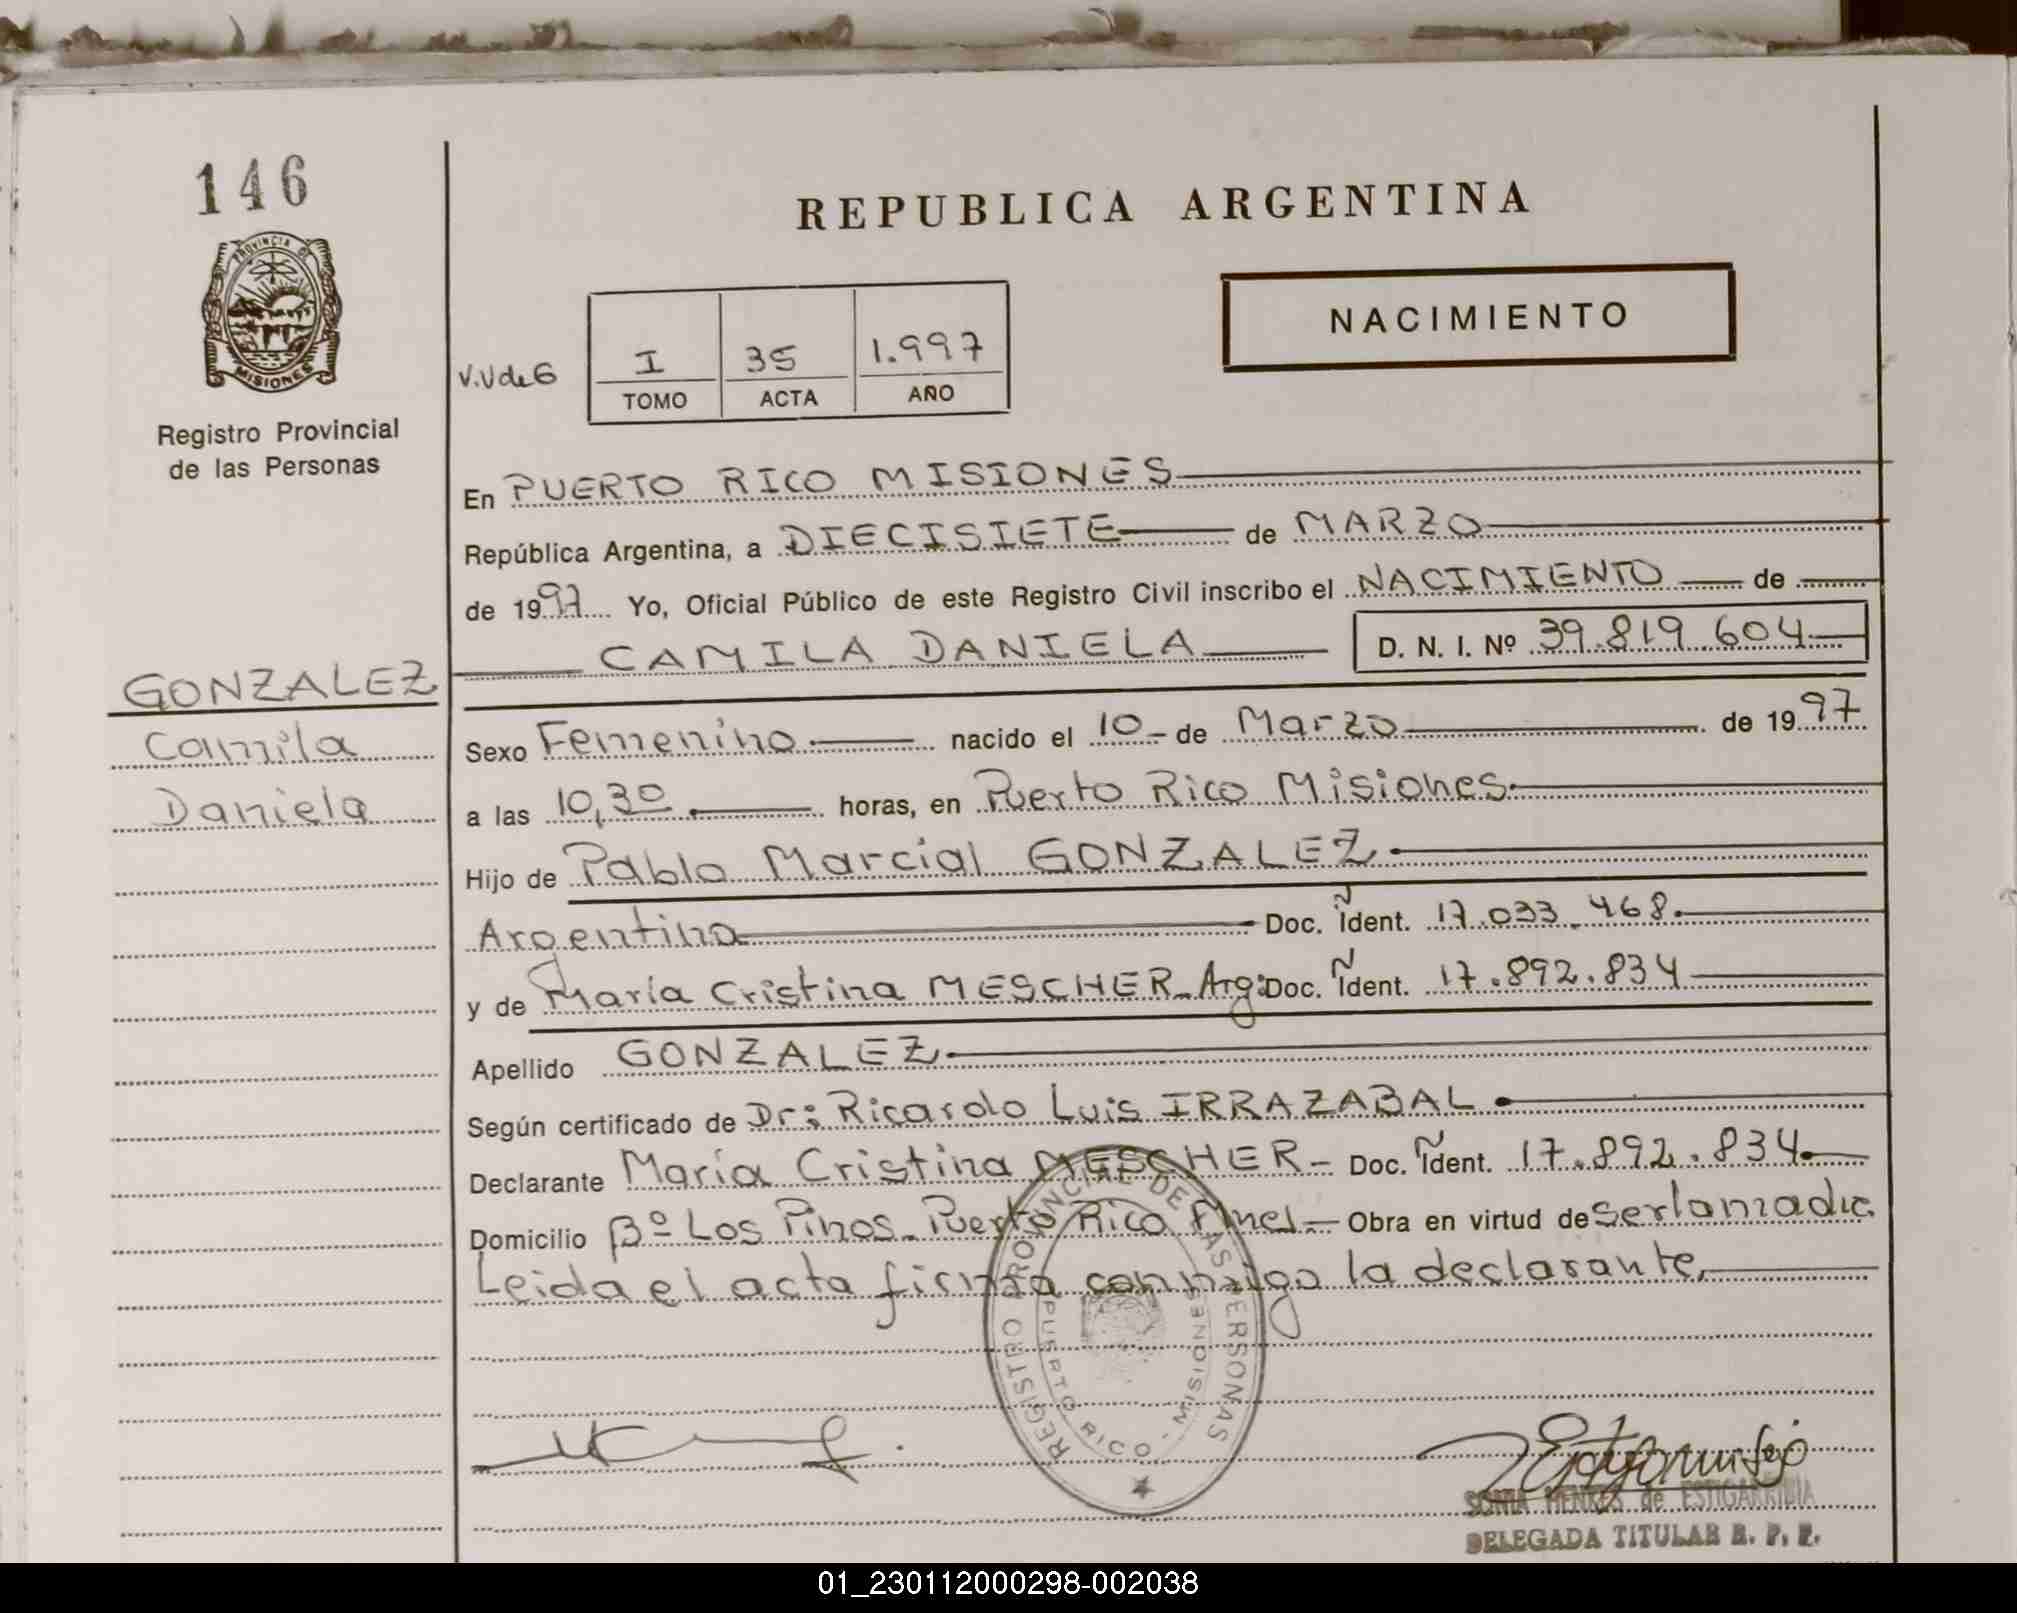 146
REPUBLICA ARGENTINA
PROVINCIA DE
MISIONES
Registro Provincial
de las Personas
NACIMIENTO
V.V de 6
I 35 1.997
TOMO ACTA AÑO
En PUERTO RICO MISIONES
República Argentina, a DIECISIETE de MARZO
de 1997 Yo, Oficial Público de este Registro Civil inscribo el NACIMIENTO de
CAMILA DANIELA D. N. I. Nº 39.819.604
GONZALEZ
Camila
Daniela
Sexo Femenino nacido el 10 de Marzo de 1997
a las 10,30 horas, en Puerto Rico Misiones
Hijo de Pablo Marcial GONZALEZ
Argentina Doc. Ident. 17.033.468
y de María Cristina MESCHER Arg: Doc. Ident. 17.892.834
Apellido GONZALEZ
Según certificado de Dr: Ricardo Luis IRRAZABAL
Declarante María Cristina MESCHER Doc. Ident. 17.892.834
Domicilio Bº Los Pinos Puerto Rico Mnes Obra en virtud de ser la madre
Leida el acta firma conmigo la declarante,
REGISTRO PROVINCIAL DE LAS PERSONAS
PUERTO RICO - MISIONES
SONIA HENKES de ESTIGARRIBIA
DELEGADA TITULAR R. P. P.
01_230112000298-002038